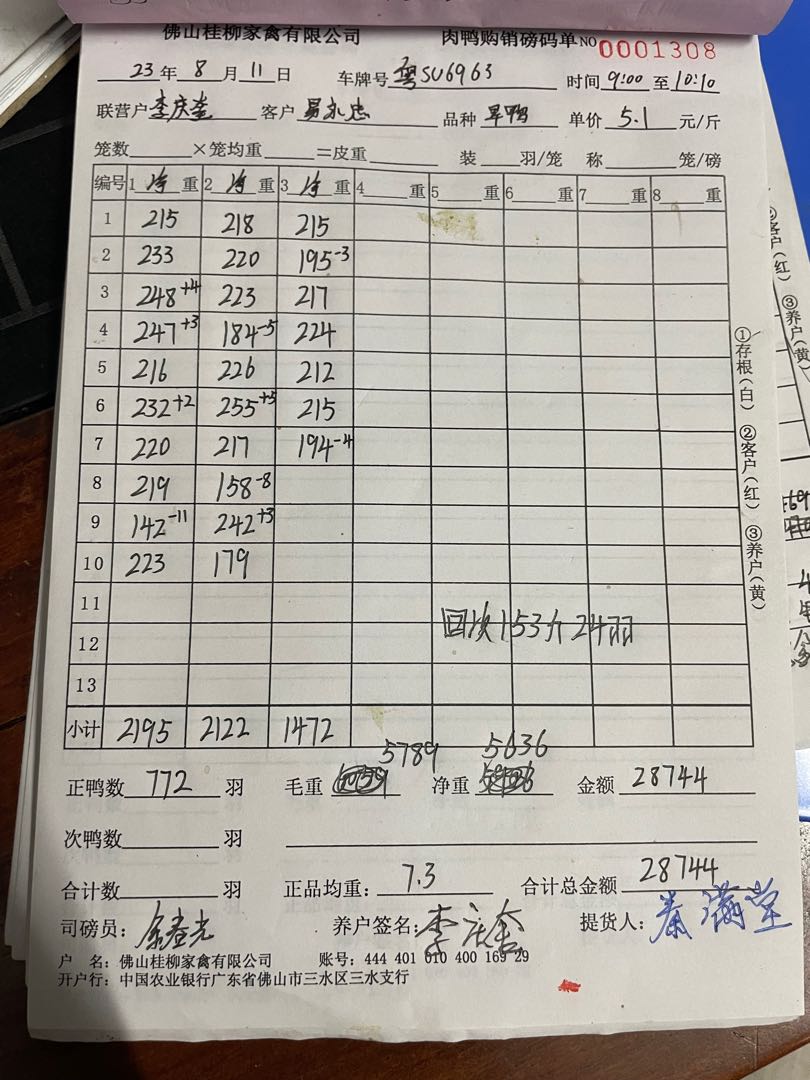 佛山桂柳家禽有限公司 肉鸭购销磅码单NO 0001308
23年8月11日 车牌号 粤SU6963 时间 9:00 至 10:10
联营户 李庆奎 客户 易永忠 品种 旱鸭 单价 5.1 元/斤
笼数______×笼均重______=皮重______ 装____羽/笼 称____笼/磅
编号 1 净 重 2 净 重 3 净 重 4 重 5 重 6 重 7 重 8 重
1 215 218 215
2 233 220 195-3
3 248+4 223 217
4 247+3 184-5 224
5 216 226 212
6 232+2 255+5 215
7 220 217 194-4
8 219 158-8
9 142-11 242+3
10 223 179
11
回次153斤24羽
12
13
小计 2195 2122 1472
5789 5636
正鸭数 772 羽 毛重 净重 金额 28744
次鸭数______羽
合计数______羽 正品均重: 7.3 合计总金额 28744
司磅员: 养户签名: 李庆奎 提货人: 秦满堂
户 名: 佛山桂柳家禽有限公司 账号: 444 401 010 400 169 29
开户行: 中国农业银行广东省佛山市三水区三水支行
①存根(白) ②客户(红) ③养户(黄)
②客户(红) ③养户(黄)